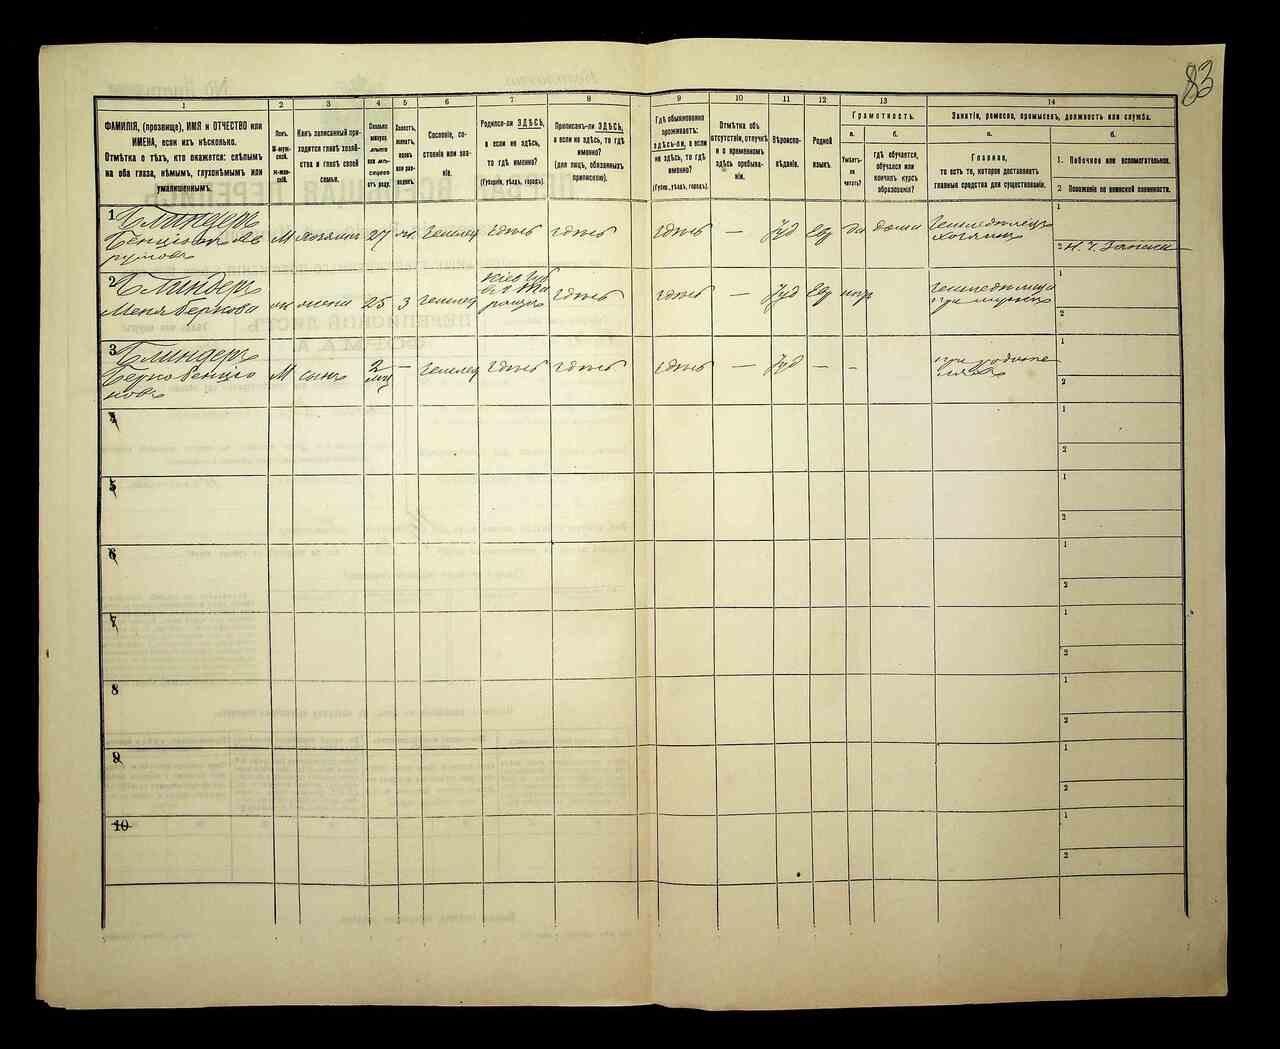 83
1
2
3
4
5
6
7
8
9
10
11
12
13
14
ФАМИЛІЯ, (прозвище), ИМЯ и ОТЧЕСТВО или
ИМЕНА, если ихъ нѣсколько.
Отмѣтка о тѣхъ, кто окажется: слѣпымъ
на оба глаза, нѣмымъ, глухонѣмымъ или
умалишеннымъ.
Полъ.
М-муж-
ской.
Ж-жен-
скій.
Какъ записанный при-
ходится главѣ хозяй-
ства и главѣ своей
семьи.
Сколько
минуло
лѣтъ
или мѣ-
сяцевъ
отъ роду.
Холостъ,
женатъ,
вдовъ
или раз-
веденъ.
Сословіе, со-
стояніе или зва-
ніе.
Родился-ли ЗДѢСЬ,
а если не здѣсь,
то гдѣ именно?
(Губернія, уѣздъ, городъ).
Приписанъ-ли ЗДѢСЬ,
а если не здѣсь, то гдѣ
именно?
(для лицъ, обязанныхъ
припискою).
Гдѣ обыкновенно
проживаетъ:
ЗДѢСЬ-ЛИ, а если
не здѣсь, то гдѣ
именно?
(Губерн., уѣздъ, городъ).
Отмѣтка объ
отсутствіи, отлучкѣ
и о временномъ
здѣсь пребыва-
ніи.
Вѣроиспо-
вѣданіе.
Родной
языкъ.
Грамотность.
а.
б.
Умѣетъ-
ли
читать?
гдѣ обучается,
обучался или
кончилъ курсъ
образованія?
Занятіе, ремесло, промыселъ, должность или служба.
а.
б.
Главное,
то есть то, которое доставляетъ
главныя средства для существованія.
1. Побочное или вспомогательное.
2 Положеніе по воинской повинности.
1
Блиндеръ
Бенціонъ Ав
румовъ
М
хозяинъ
27
ж.
Землед
здѣсь
здѣсь
здѣсь
—
Іуд
Евр
да
дома
Земледѣлецъ
хозяинъ
1
2
2
Блиндеръ
Меня Беркова
ж
жена
25
з
землед
здѣсь
здѣсь
—
Іуд
Евр
1
2
3
Блиндеръ
Берко Бенціо
новъ
М
сынъ
2
—
Землед
здѣсь
здѣсь
здѣсь
—
Іуд
—
—
при родите
ляхъ
1
2
4
1
2
5
1
2
6
1
2
7
1
2
8
1
2
9
1
2
10
1
2